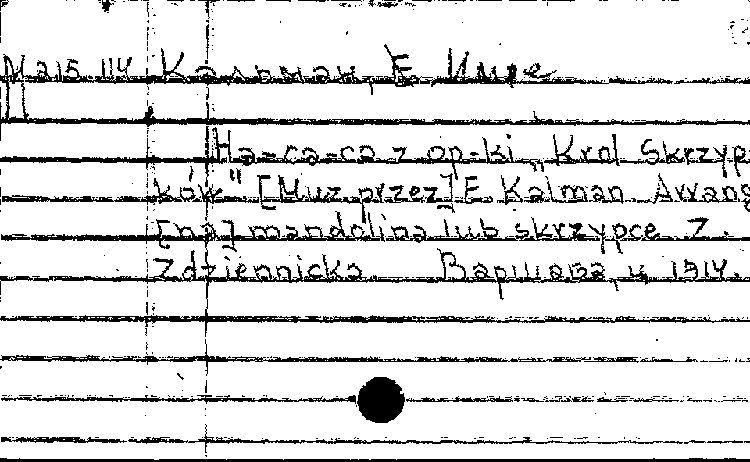 Ма15 114 Кальман, Е. Имре
Ha-ca-ca z op-ki „Krol Skrzyp-
ków" [Muz. przez] E. Kalman Arrang
[na] mandolina lub skrzypce Z.
Zdziennicka. Варшава, ц. 1914.